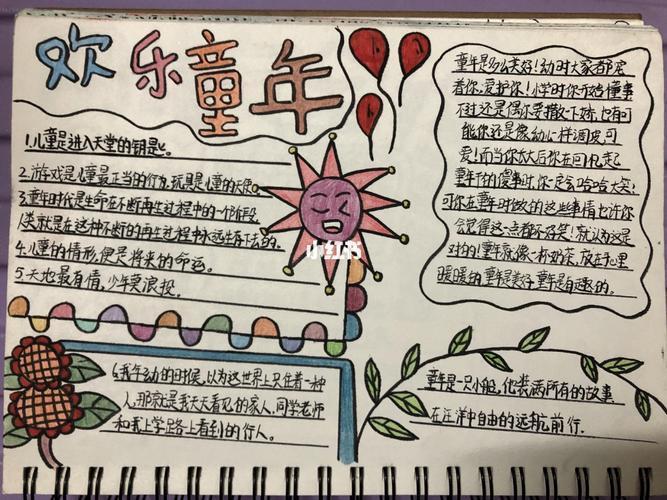 欢乐童年
1.儿童是进入天堂的钥匙。
2.游戏是儿童最正当的行为,玩具是儿童的天使。
3.童年时代是生命在不断再生过程中的一个阶段,
人类就是在这种不断的再生过程中永远生存下去的。
4.儿童的情形,便是将来的命运。
5.天地最有情,少年莫浪投。
小红书
童年是多么美好!幼时大家都宠
着你,爱护你!小学时你开始懂事
不过还是偶尔要捣一下蛋,也有可
能你还是像幼儿一样调皮,可
爱!而当你长大后你在回忆起
童年干的傻事时你一定会哈哈大笑!
可你在童年时做的这些事情也许你
会觉得这一点都不好笑!就认为这是
对的!童年就像一杯奶茶,放在手心里
暖暖的,童年是美好,童年是有趣的。
6.我年幼的时候,以为这世界上只住着一种
人,那就是我天天看见的家人,同学老师
和我上学路上看到的行人。
童年是一只小船,他装满所有的故事
在汪洋中自由的远航,前行。